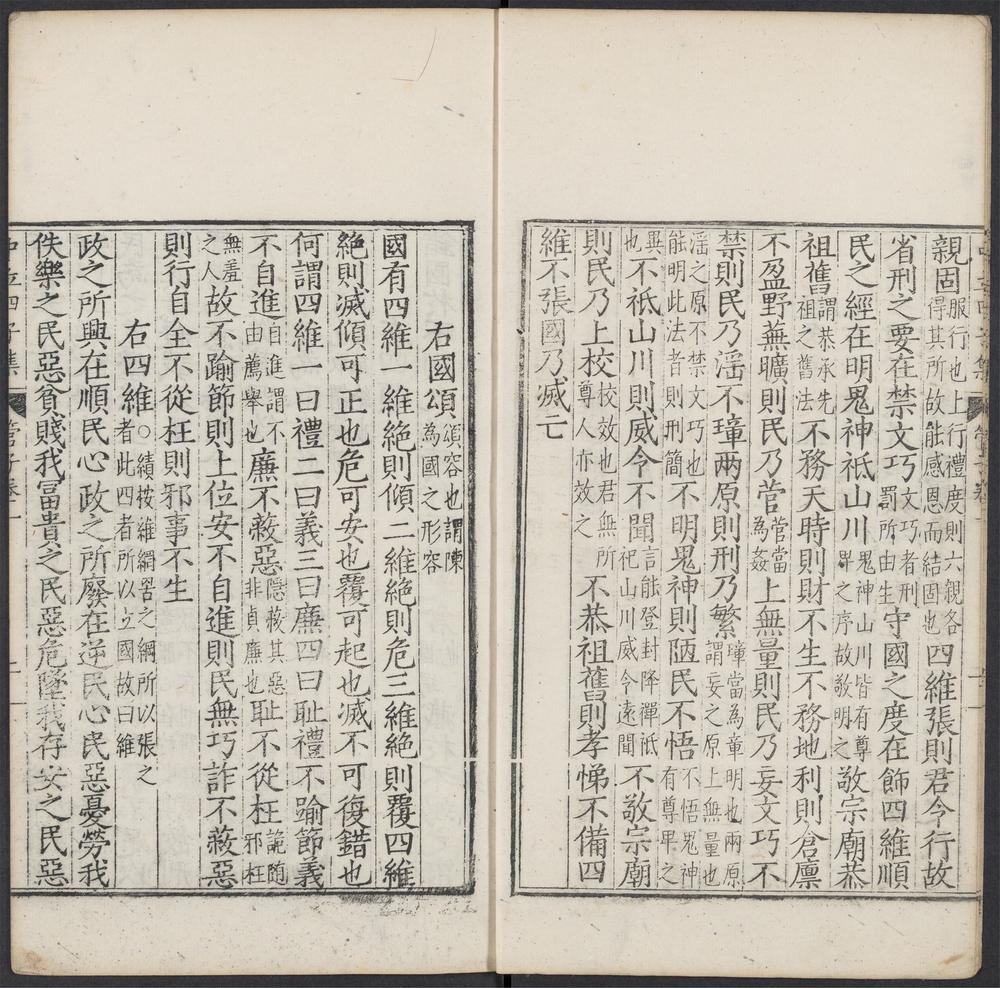 親固服行也上行禮度則六親各得其所故能感恩而結固也四維張則君令行故
省刑之要在禁文巧文巧者刑罰所由生守國之度在飾四維順
民之經在明鬼神祗山川鬼神山川皆有尊畀之序故敬明之敬宗廟恭
祖舊謂恭承先祖之舊法不務天時則財不生不務地利則倉廩
不盈野蕪曠則民乃菅菅當為姦上無量則民乃妄文巧不
禁則民乃淫不璋兩原則刑乃繁璋當為章明也兩原謂妄之原上無量也
淫之原不禁文巧也能明此法者則刑簡不明鬼神則陋民不悟不悟鬼神有尊卑之
異也不祗山川則威令不聞言能登封降禪祗祀山川威令遠聞不敬宗廟
則民乃上校校效也君無所尊人亦效之不恭祖舊則孝悌不備四
維不張國乃滅亡
右國頌頌容也謂陳為國之形容
國有四維一維絶則傾二維絶則危三維絶則覆四維
絶則滅傾可正也危可安也覆可起也滅不可復錯也
何謂四維一曰禮二曰義三曰廉四曰耻禮不踰節義
不自進自進謂不由薦舉也廉不蔽惡隱蔽其惡非貞廉也耻不從枉詭隨邪枉
無羞之人故不踰節則上位安不自進則民無巧詐不蔽惡
則行自全不從枉則邪事不生
右四維○績按維網罟之網所以張之者此四者所以立國故曰維
政之所興在順民心政之所廢在逆民心民惡憂勞我
佚樂之民惡貧賤我富貴之民惡危墜我存安之民惡